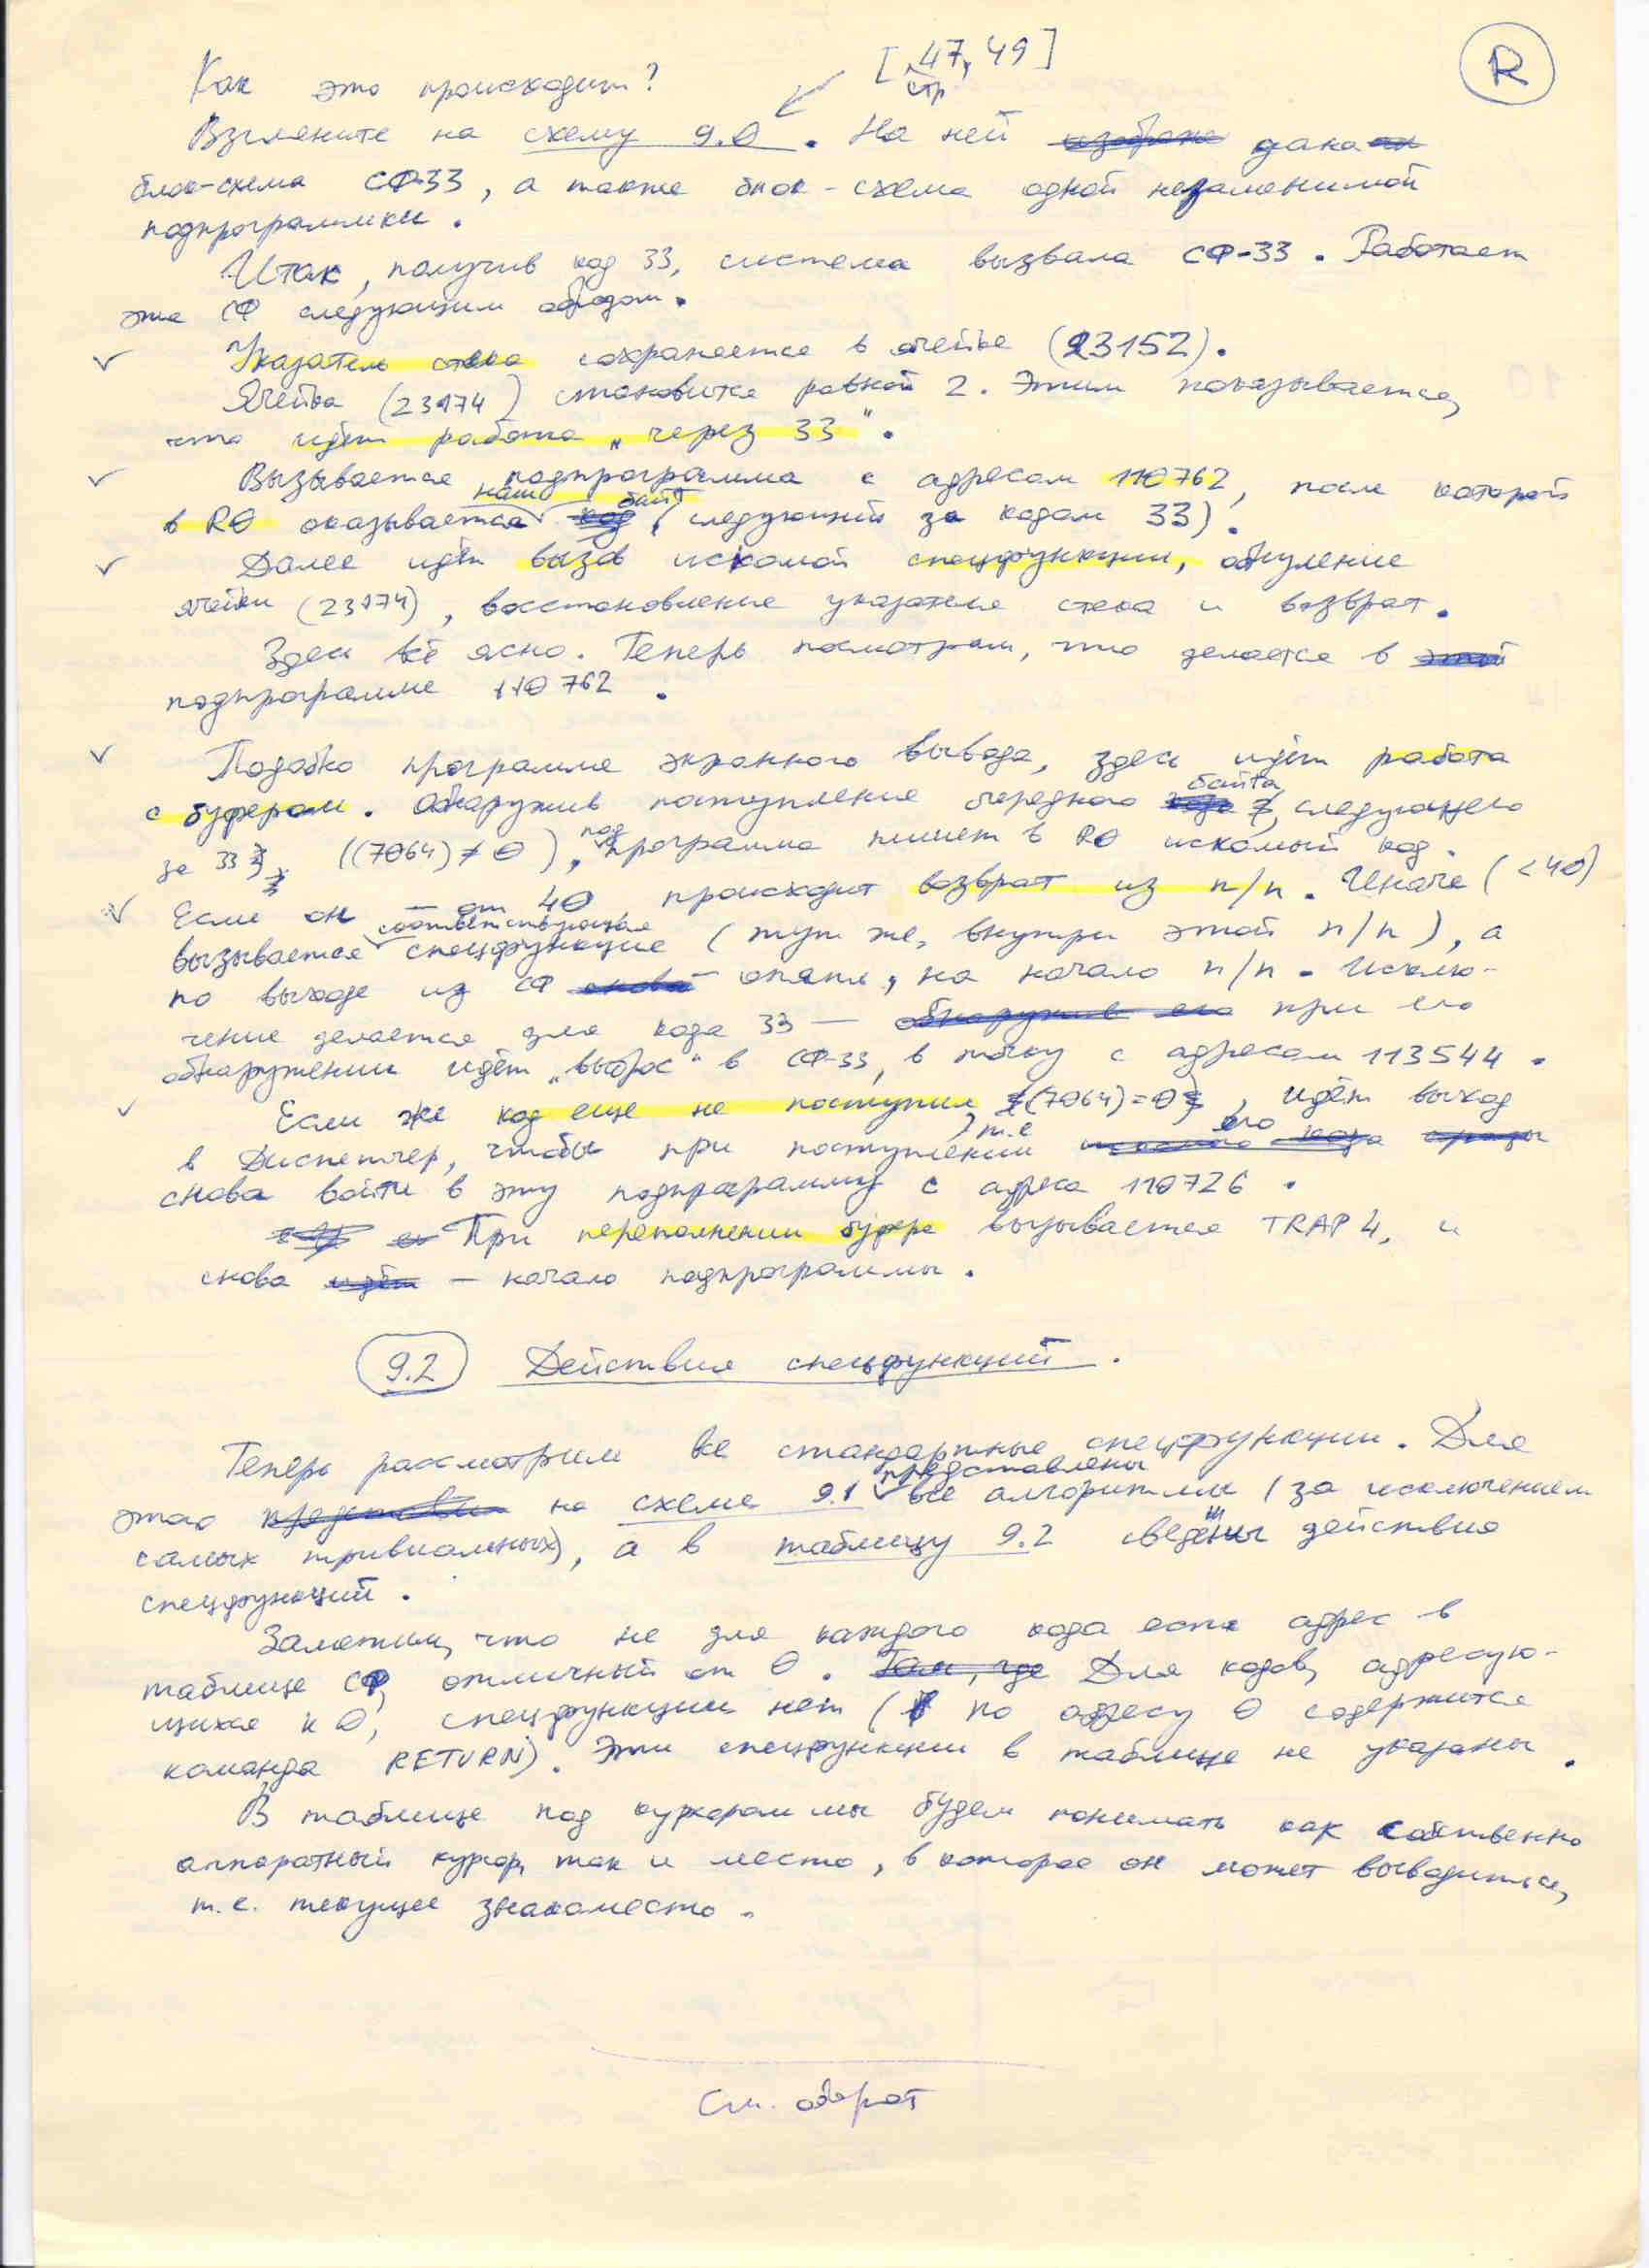 [стр 47, 49]
R
Как это происходит?
Взгляните на схему 9.0. На ней дана
блок-схема СФ-33, а также блок-схема одной незаменимой
подпрограммки.
Итак, получив код 33, система вызвала СФ-33. Работает
эта СФ следующим образом.
Указатель стека сохраняется в ячейке (23152).
Ячейка (23174) становится равной 2. Этим показывается,
что идёт работа „через 33".
Вызывается подпрограмма с адресом 110762, после которой
в R0 оказывается наш байт (следующий за кодом 33).
Далее идёт вызов искомой спецфункции, обнуление
ячейки (23174), восстановление указателя стека и возврат.
Здесь всё ясно. Теперь посмотрим, что делается в
подпрограмме 110762.
Подобно программе экранного вывода, здесь идёт работа
с буфером. Обнаружив поступление очередного байта, следующего
за 33, ((7064)≠0), подпрограмма пишет в R0 искомый код.
Если он — от 40 происходит возврат из п/п. Иначе (<40)
вызывается соответствующая спецфункция (тут же, внутри этой п/п), а
по выходе из СФ – опять, на начало п/п. Исклю-
чение делается для кода 33 — при его
обнаружении идёт „выброс" в СФ-33, в точку с адресом 113544.
Если же код еще не поступил, т.е (7064)=0, идёт выход
в Диспетчер, чтобы при поступлении его
снова войти в эту подпрограмму с адреса 110726.
При переполнении буфера вызывается TRAP 4, и
снова — начало подпрограммы.
9.2 Действия спецфункций.
Теперь рассмотрим все стандартные спецфункции. Для
этого на схеме 9.1 представлены все алгоритмы (за исключением
самых тривиальных), а в таблицу 9.2 сведены действия
спецфункций.
Заметим, что не для каждого кода есть адрес в
таблице СФ, отличный от 0. Для кодов, адресую-
щихся к 0, спецфункции нет (по адресу 0 содержится
команда RETURN). Эти спецфункции в таблице не указаны.
В таблице под курсором мы будем понимать как собственно
аппаратный курсор, так и место, в которое он может выводиться,
т.е. текущее знакоместо.
См. оборот